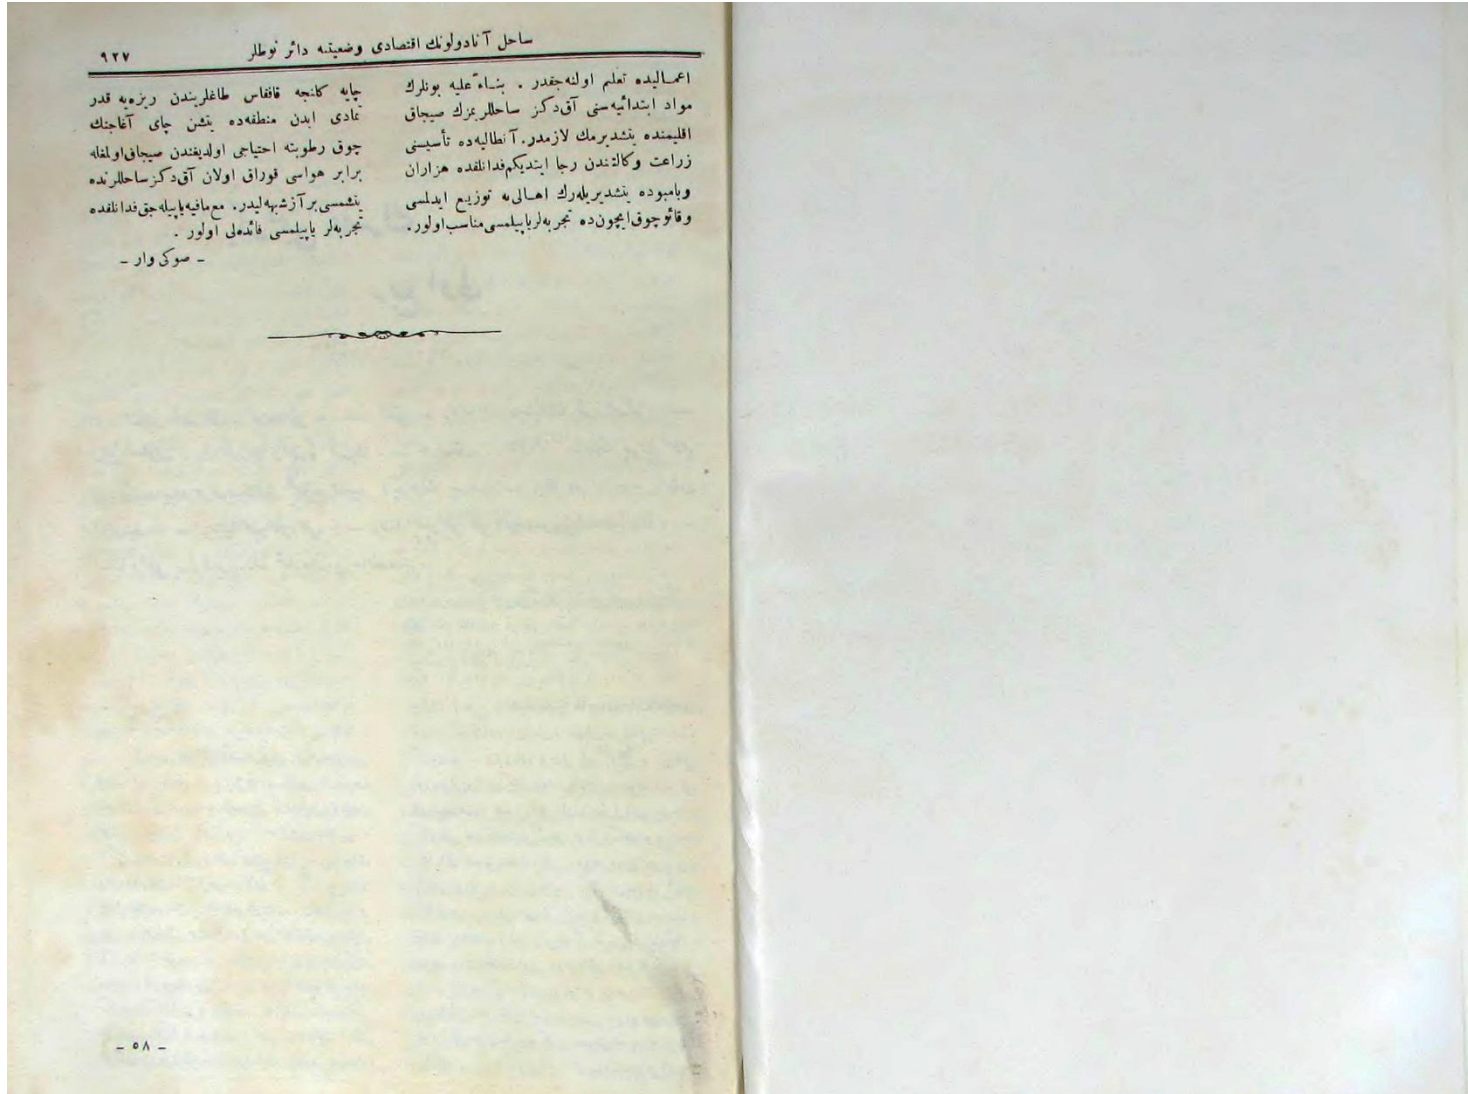 ساحل آنادولونك اقتصادی وضعیتنه دائر نوطلر
٩٢٧
اعمالیده تعلیم اولنه‌جقدر . بناءً علیه بونلرك
مواد ابتدائیه‌سنی آق‌دكز ساحللریمزك صیجاق
اقلیمنده یتشدیرمك لازمدر. آنطالیه‌ده تأسیسنی
زراعت وكالتندن رجا ایتدیكم فدانلقده هزاران
وبامبوده یتشدیریله‌رك اهالی‌یه توزیع ایدلمسی
وقائوچوق ایچون‌ده تجربه‌لر یاپیلمسی مناسب اولور.
چایه كلنجه قافقاس طاغلریندن ریزه‌یه قدر
تمادی ایدن منطقه‌ده یتشن چای آغاجنك
چوق رطوبته احتیاجی اولدیغندن صیجاق اولمغله
برابر هواسی قوراق اولان آق‌دكز ساحللرنده
یتشمسی بر آز شبهه‌لیدر. مع‌مافیه یاپیله‌جق فدانلقده
تجربه‌لر یاپیلمسی فائده‌لی اولور .
ـ صوكی وار ـ
ـ ٥٨ ـ